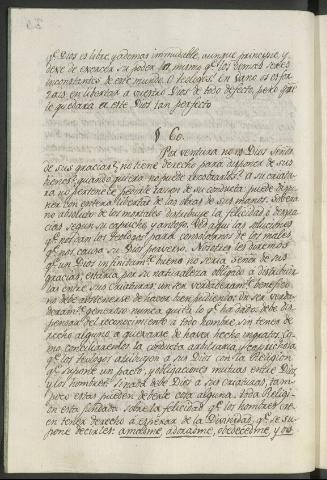 qᵉ Dios es libre, y ademas immutable, aunque principie y
dexe de exercer su poder los mismos qᵉ los demas seres
inconstantes de este mundo. O teologos! En vano os esfor
zais en libertar a vuestro Dios de todo defecto, pero qᵉ
le quedara a este Dios tan perfecto
§ 60.
Por ventura no es Dios Señor
de sus gracias? no tiene derecho para disponer de sus
bienes? quando quiera no puede recobrarlos? a su criatu
ra no pertenece pedirle razon de su conducta; puede dispo
ner con entera libertad de las obras de sus manos. Sobera
no absoluto de los mortales distribuye la felicidad o desgra
cias segun su capricho, y antojo. Ved aqui las soluciones
qᵉ nos dan los Teologos para consolarnos de los males
qᵉ nos causa su Dios perverso. Nosotros les diremos
qᵉ un Dios infinitamᵗᵉ bueno no seria Señor de sus
gracias; estaria por su naturaleza obligado a distribuir
las entre sus criaturas: un ser verdaderamᵗᵉ benefico
no debe abstenerse de hacer bien pudiendo: un ser verda
deramᵗᵉ generoso nunca quita lo qᵉ ha dado; debe dis
pensar del reconocimiento a todo hombre sin tener de
recho alguno a quexarse de haver hecho ingratos. Co
mo conciliaremos la conducta arbitraria, y caprichosa
qᵉ los teologos atribuyen a sus Dios con la Religion
qᵉ supone un pacto, y obligaciones mutuas entre Dios
y los hombres? Si nada debe Dios a sus criaturas, tam
poco estas pueden deberle cosa alguna. Toda Religi
on esta fundada sobre la felicidad qᵉ los hombres cre
en tener derecho a esperar de la Divinidad, qᵉ se su
pone decirles: amadme, adoradme, obedecedme, y os